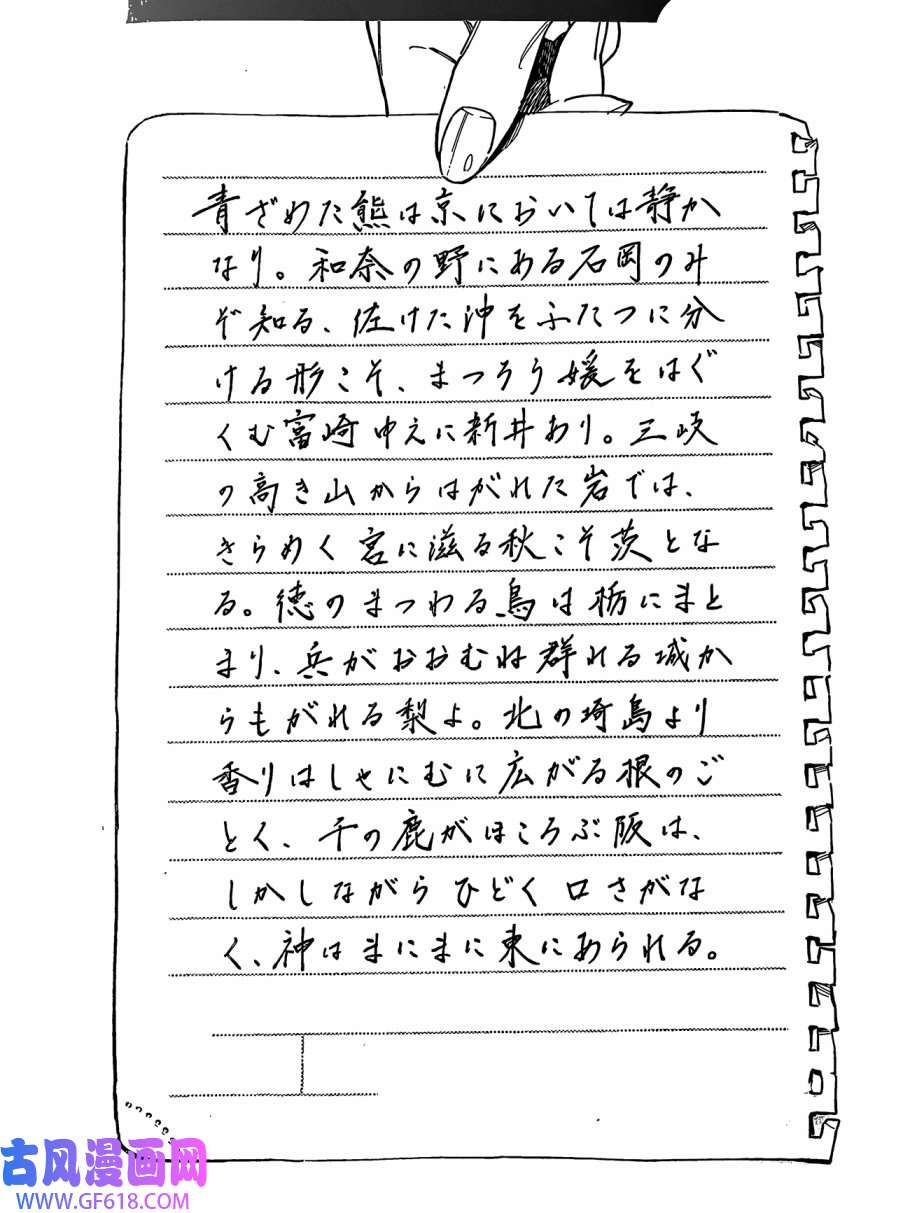 青ざめた熊は京においては静か
なり。和奈の野にある石岡のみ
ぞ知る、佐けた沖をふたつに分
ける形こそ、まつろう媛をはぐ
くむ富崎ゆえに新井あり。三岐
の高き山からはがれた岩では、
きらめく宮に滋る秋こそ茨とな
る。徳のまつわる鳥は栃にまと
まり、兵がおおむね群れる城か
らもがれる梨よ。北の埼島より
香りはしゃにむに広がる根のご
とく、千の鹿がほころぶ阪は、
しかしながらひどく口さがな
く、神はまにまに東にあられる。
古风漫画网
WWW.GF618.COM